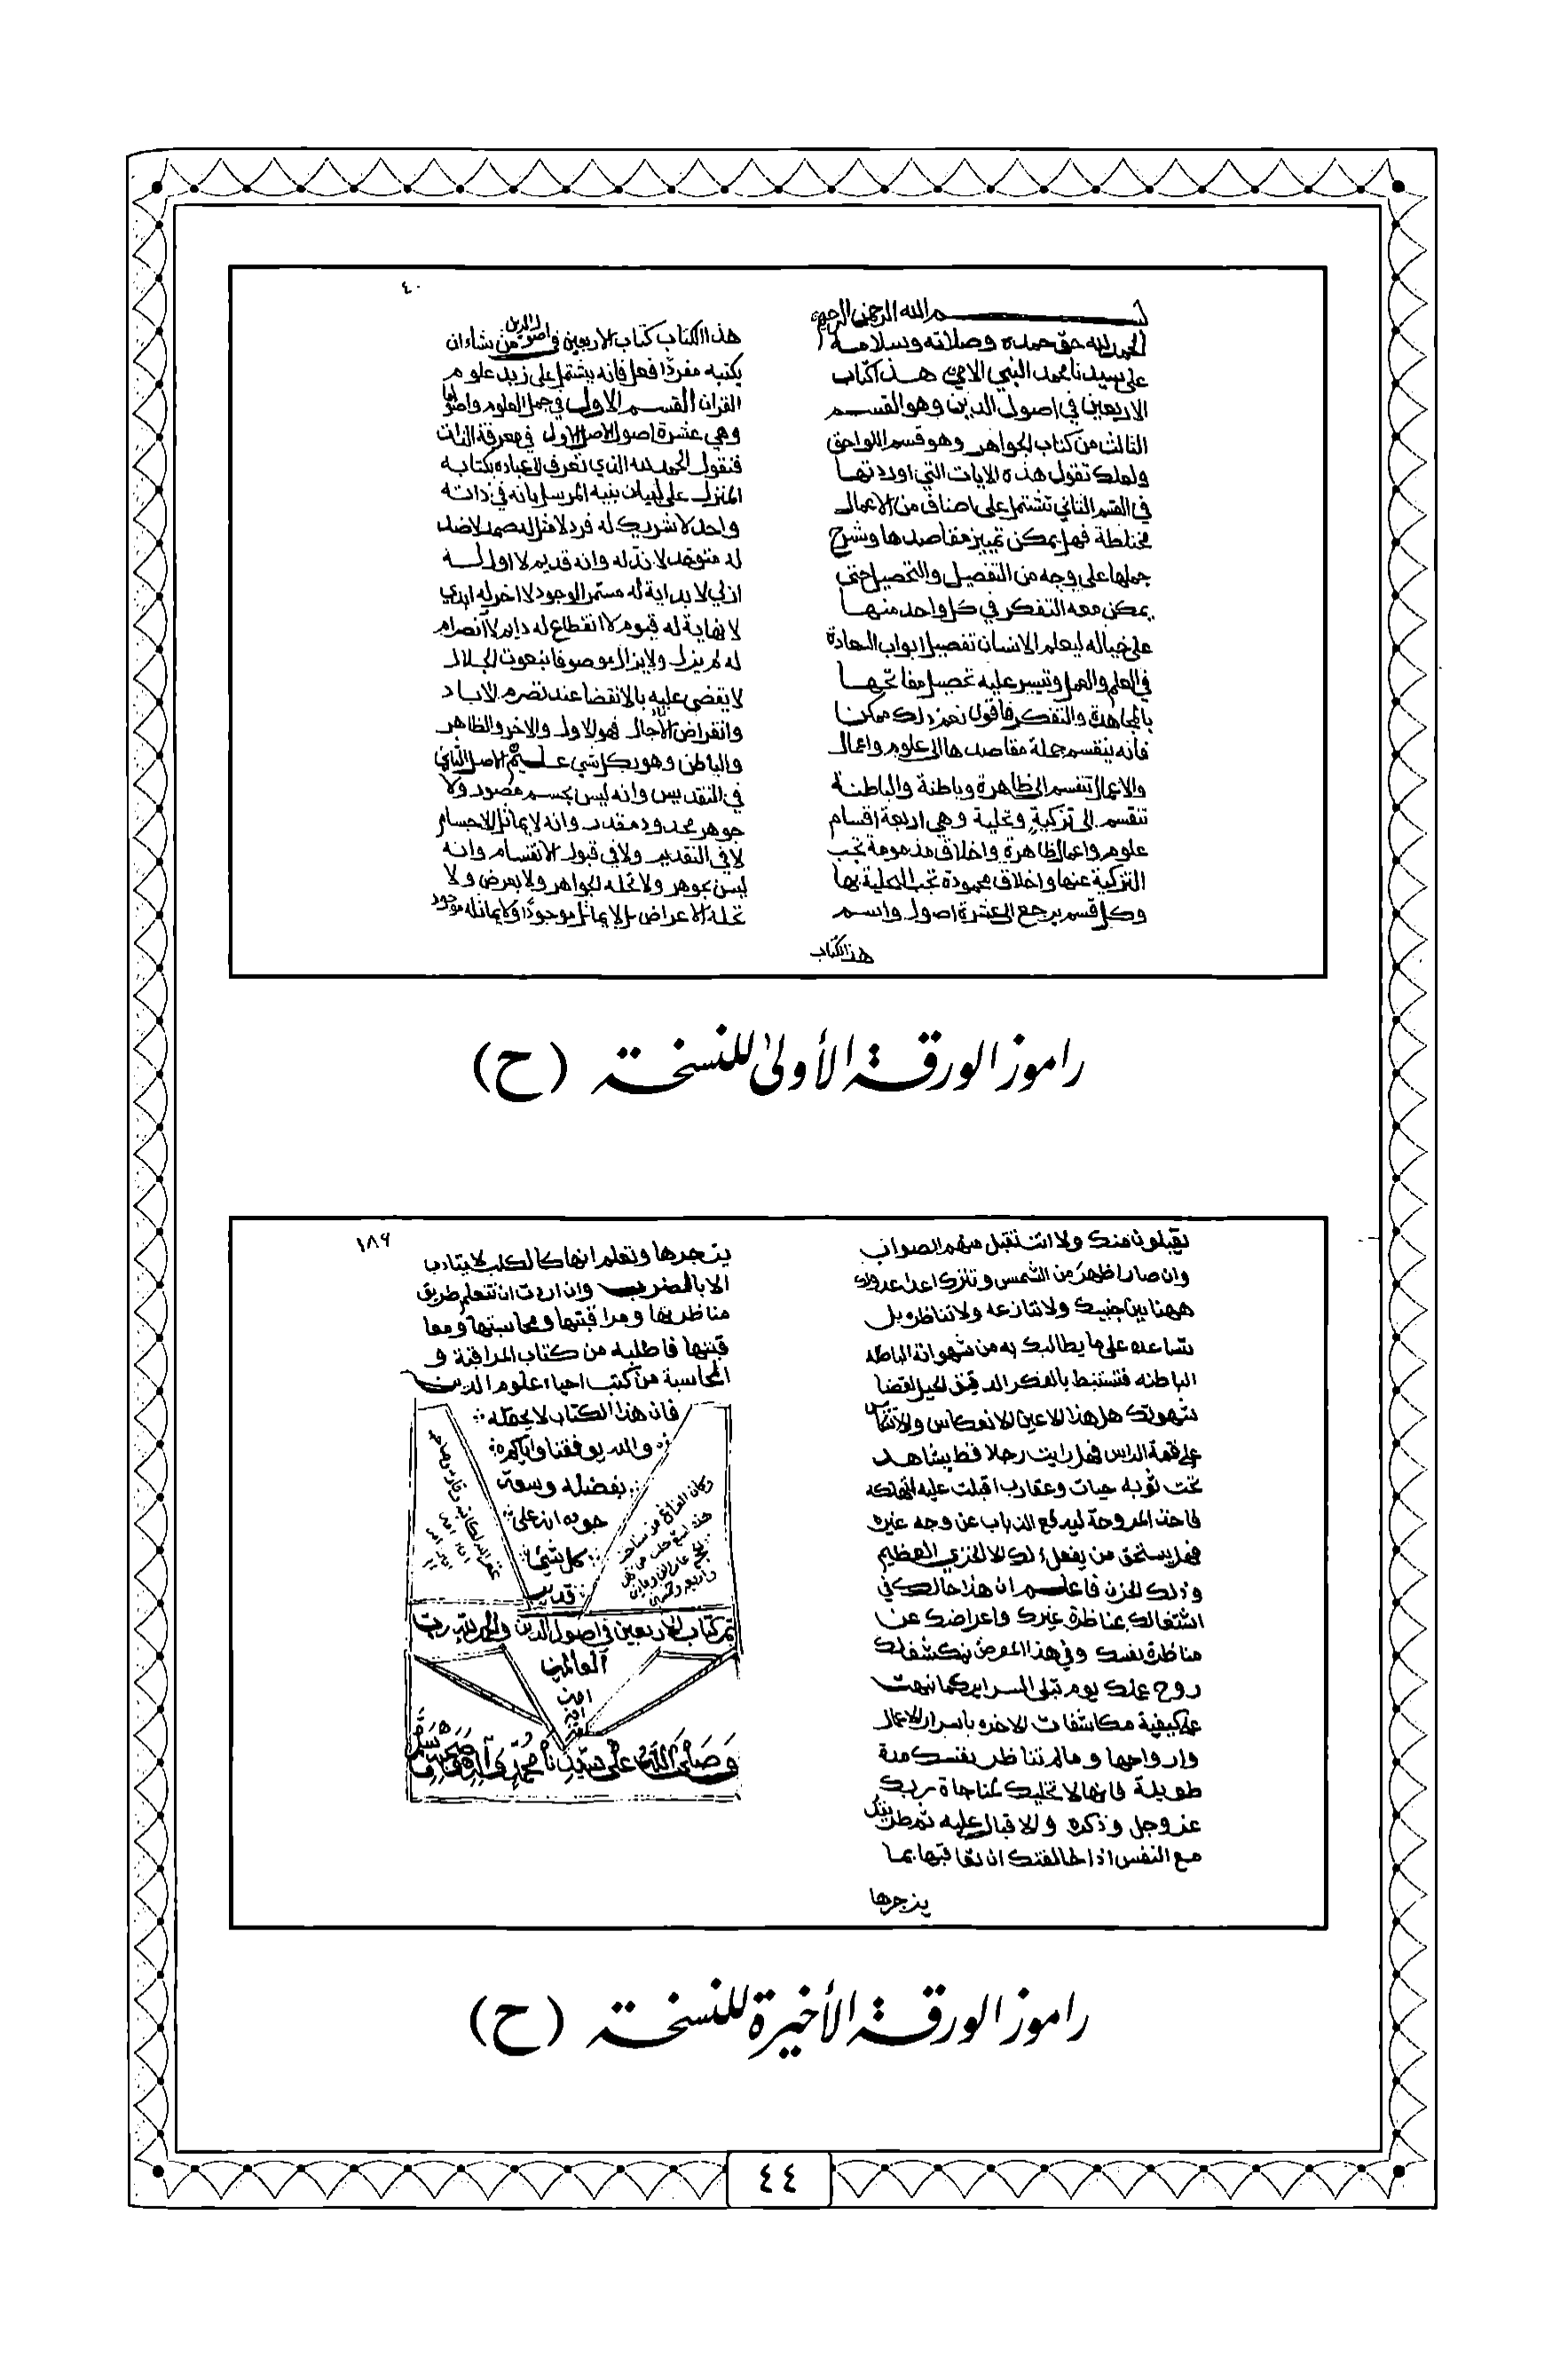 بسم الله الرحمن الرحيم
الحمد لله حق حمده وصلاته وسلامه
على سيدنا محمد النبي الامي هذا كتاب
الاربعين في اصول الدين وهو القسم
الثالث من كتاب الجواهر وهو قسم اللواحق
ولعلك تقول هذه الايات التي اوردتها
في القسم الثاني تشتمل على اصناف من الاعمال
مختلطة فهل يمكن تمييز مقاصدها وشرح
جملها على وجه من التفصيل والتحصيل حتى
يمكن معه التفكر في كل واحد منها
على حياله ليعلم الانسان تفصيل ابواب السعادة
في العلم والعمل وتتيسر عليه تحصيل مفاتحها
بالمجاهدة والتفكر فاقول نعم ذلك ممكن
فانه ينقسم جملة مقاصدها الى علوم واعمال
والاعمال تنقسم الى ظاهرة وباطنة والباطنة
تنقسم الى تزكية وتحلية وهي اربعة اقسام
علوم واعمال ظاهرة واخلاق مذمومة تجب
التزكية عنها واخلاق محمودة تجب التحلية بها
وكل قسم يرجع الى عشرة اصول واسم
هذا الكتاب
٤٠
هذا الكتاب كتاب الاربعين في اصول الدين فمن شاء ان
يكتبه مفردا فعل فانه يشتمل على زبد علوم
القران القسم الاول في جمل العلوم واصولها
وهي عشرة اصول الاصل الاول في معرفة الذات
فنقول الحمد لله الذي تعرف الى عباده بكتابه
المنزل على لسان نبيه المرسل بانه في ذاته
واحد لا شريك له فرد لا مثل له صمد لا ضد
له متوحد لا ند له وانه قديم لا اول له
ازلي لا بداية له مستمر الوجود لا اخر له ابدي
لا نهاية له قيوم لا انقطاع له دايم لا انصرام
له لم يزل ولا يزال موصوفا بنعوت الجلال
لا يقضى عليه بالانقضا عند تصرم الاباد
وانقراض الآجال فهو الاول والاخر والظاهر
والباطن وهو بكل شي عليم الاصل الثاني
في التقديس وانه ليس بجسم مصور ولا
جوهر محدود مقدر وانه لا يماثل الاجسام
لا في التقدير ولا في قبول الانقسام وانه
ليس بجوهر ولا تحله الجواهر ولا بعرض ولا
تحله الاعراض بل لا يماثل موجودا ولا يماثله موجود
راموز الورقة الأولى للنسخة (ح)
يقبلون منك ولا انت تقبل منهم الصواب
وان صار اظهر من الشمس وتترك اعدا عدوك
ههنا بين جنبيك ولا تنازعه ولا تناظره بل
تساعده على ما يطالبك به من شهواته الباطله
الباطنه فتستنبط بالفكر الدقيق الحيل لقضا
شهوتك هل هذا الا عين الانعكاس والانتكاس
على قمة الراس فهل رايت رجلا قط يشاهد
تحت ثوبه حيات وعقارب اقبلت عليه لتهلكه
فاخذ المروحة ليدفع الذباب عن وجه غيره
فهل يستحق من يفعل ذلك الا الخزي العظيم
وذلك الحزن فاعلم ان هذا حالك في
اشتغالك بمناظرة غيرك واعراضك عن
مناظرة نفسك وفي هذا المعرض تنكشف لك
روح عملك يوم تبلى السراير كما نبهت
على كيفية مكاشفات الاخره باسرار الاعمال
وارواحها وما لم تناظر نفسك مدة
طويلة فانها لا تخليك لمناجاة ربك
عز وجل وذكره والاقبال عليه ثم طريقك
مع النفس اذا خالفتك ان تعاقبها بما
يزجرها
١٨٩
يزجرها وتعلم انها كالكلب لا يتادب
الا بالضرب وان اردت ان تتعلم طريق
مناظرتها ومراقبتها ومحاسبتها ومعا
قبتها فاطلبه من كتاب المراقبة و
المحاسبة من كتب احياء علوم الدين
فان هذا الكتاب لا يحمله
والله يوفقنا واياكم
بفضله وسعة
جوده انه على
كل شي
قدير
تم كتاب الاربعين في اصول الدين والحمد لله رب
العالمين
امين
وصلى الله على سيدنا محمد وعلى آله وصحبه وسلم
راموز الورقة الأخيرة للنسخة (ح)
٤٤